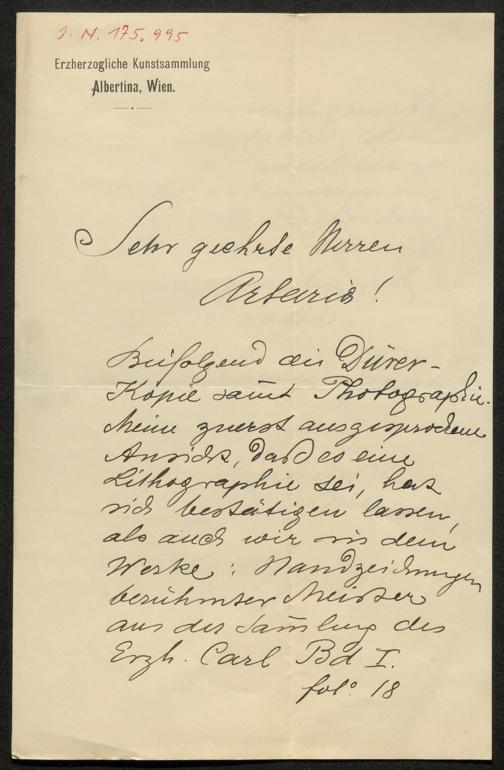 J. N. 175.995
Erzherzogliche Kunstsammlung
Albertina, Wien.
Sehr geehrte Herren
Artaria!
Beifolgend die Dürer-
Kopie samt Photographie.
Meine zuerst ausgesprochene
Ansicht, daß es eine
Lithographie sei, hat
sich bestätigen lassen,
als auch wir in dem
Werke: Handzeichnungen
berühmter Meister
aus der Samlung des
Erzh. Carl Bd I.
fol° 18